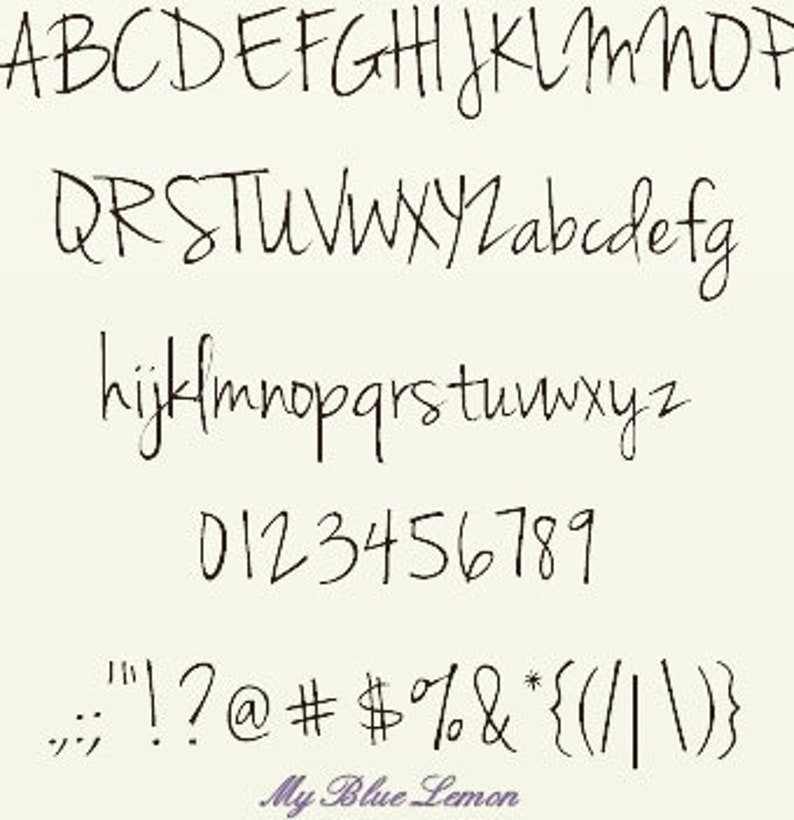 ABCDEFGHIJKLMNOP
QRSTUVWXYZabcdefg
hijklmnopqrstuvwxyz
0123456789
.,:;'"!?@#$%&*{(/|\)}
My Blue Lemon